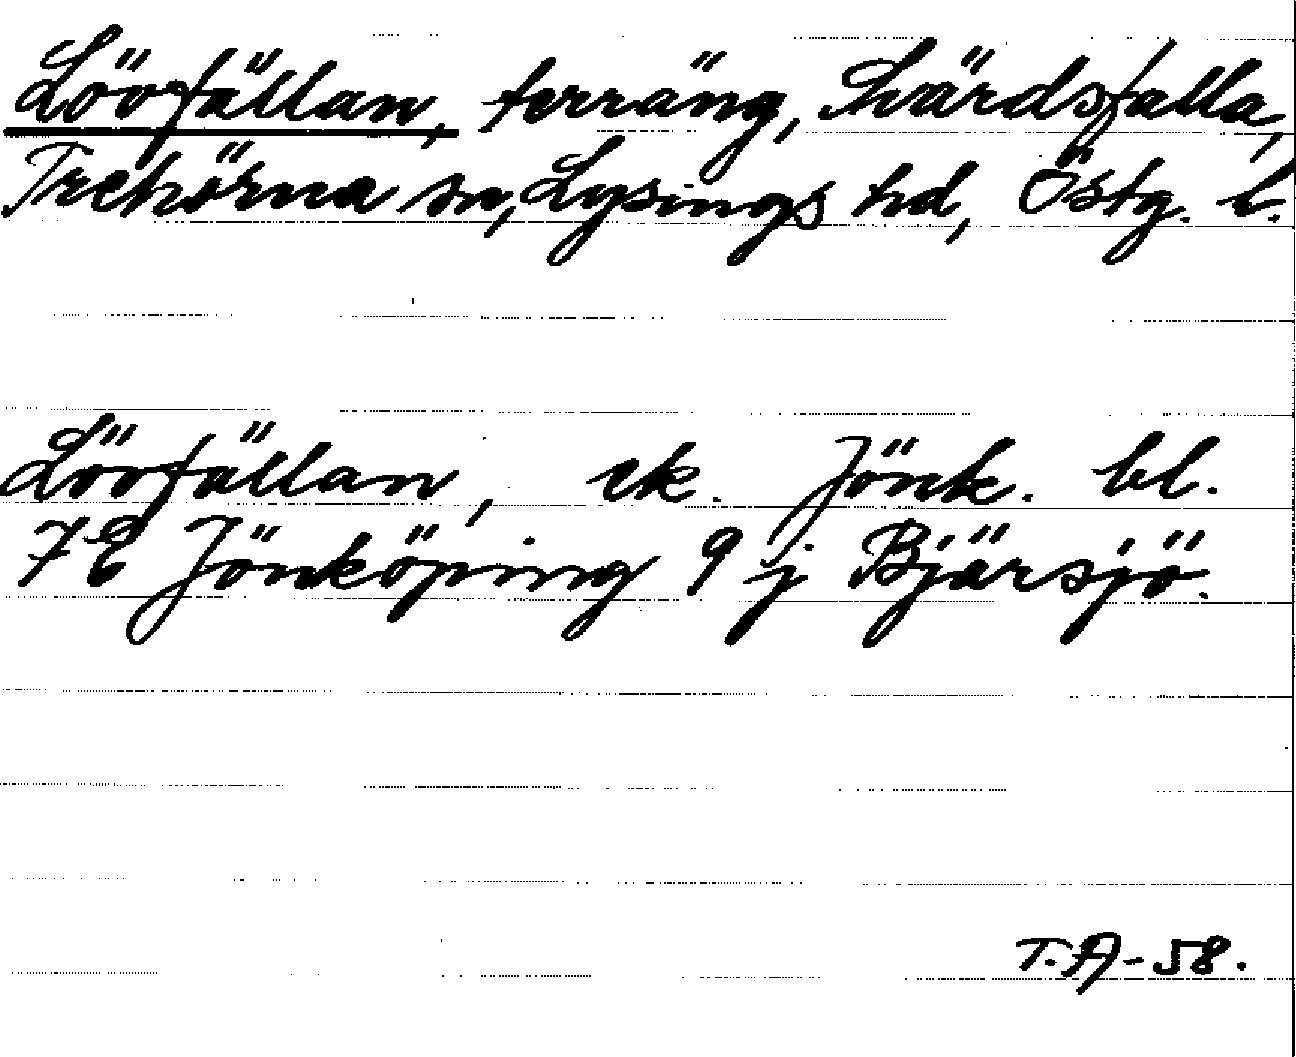 Lövfällan, terräng, Svärdsfalla,
Trehörna sn, Lysings hd, Östg. l.
Lövfällan, ek. Jönk. bl.
7E Jönköping 9 j Bjärsjö.
T.A-58.